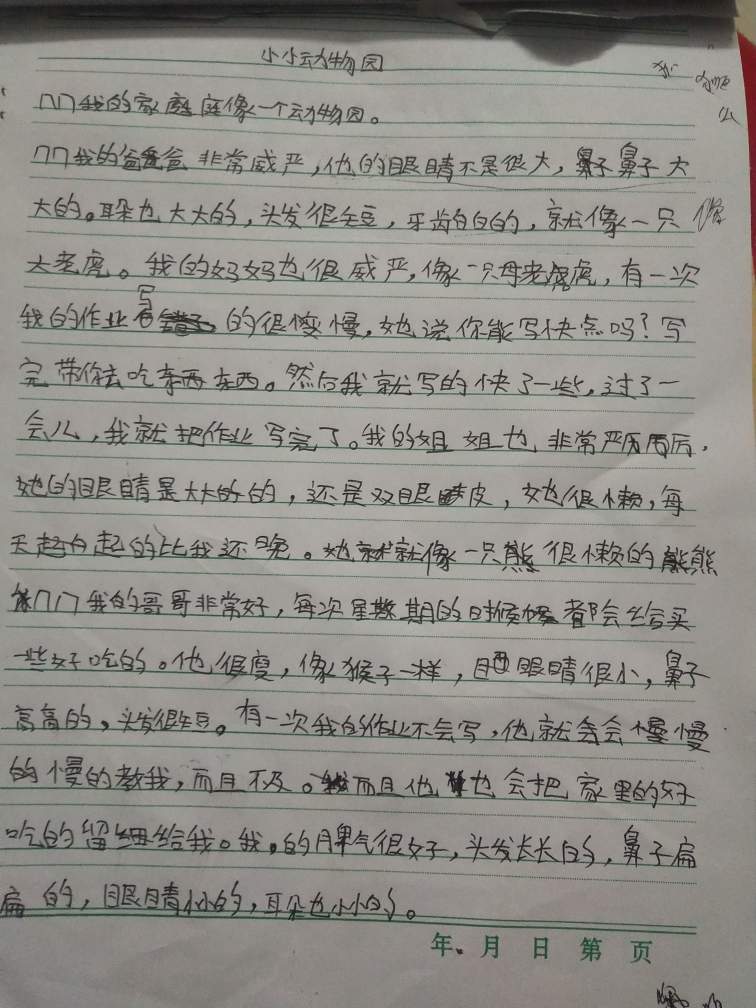 小小动物园
我的家庭庭像一个动物园。
我的爸爸 非常威严，他的眼睛不是很大，鼻子鼻子大
大的。耳朵也大大的，头发很短，牙齿白白的，就像一只
大老虎。我的妈妈也很威严，像一只母老虎，有一次
写
我的作业 的很慢，她说你能写快点吗？写
完带你去吃东西。然后我就写的快了一些，过了一
会儿，我就把作业写完了。我的姐姐也非常严厉，
她的眼睛是大大的，还是双眼皮，她很懒，每
天起的比我还晚。她就像一只熊很懒的熊
我的哥哥非常好，每次星期的时候都会给买
一些好吃的。他很瘦，像猴子一样，眼睛很小，鼻子
高高的，头发很短。有一次我的作业不会写，他就会慢慢
的慢的教我，而且不 。而且他也会把家里的好
吃的留 给我。我，的脾气很好，头发长长的，鼻子扁
扁的，眼睛小小的，耳朵也小小的。
年 月 日 第 页